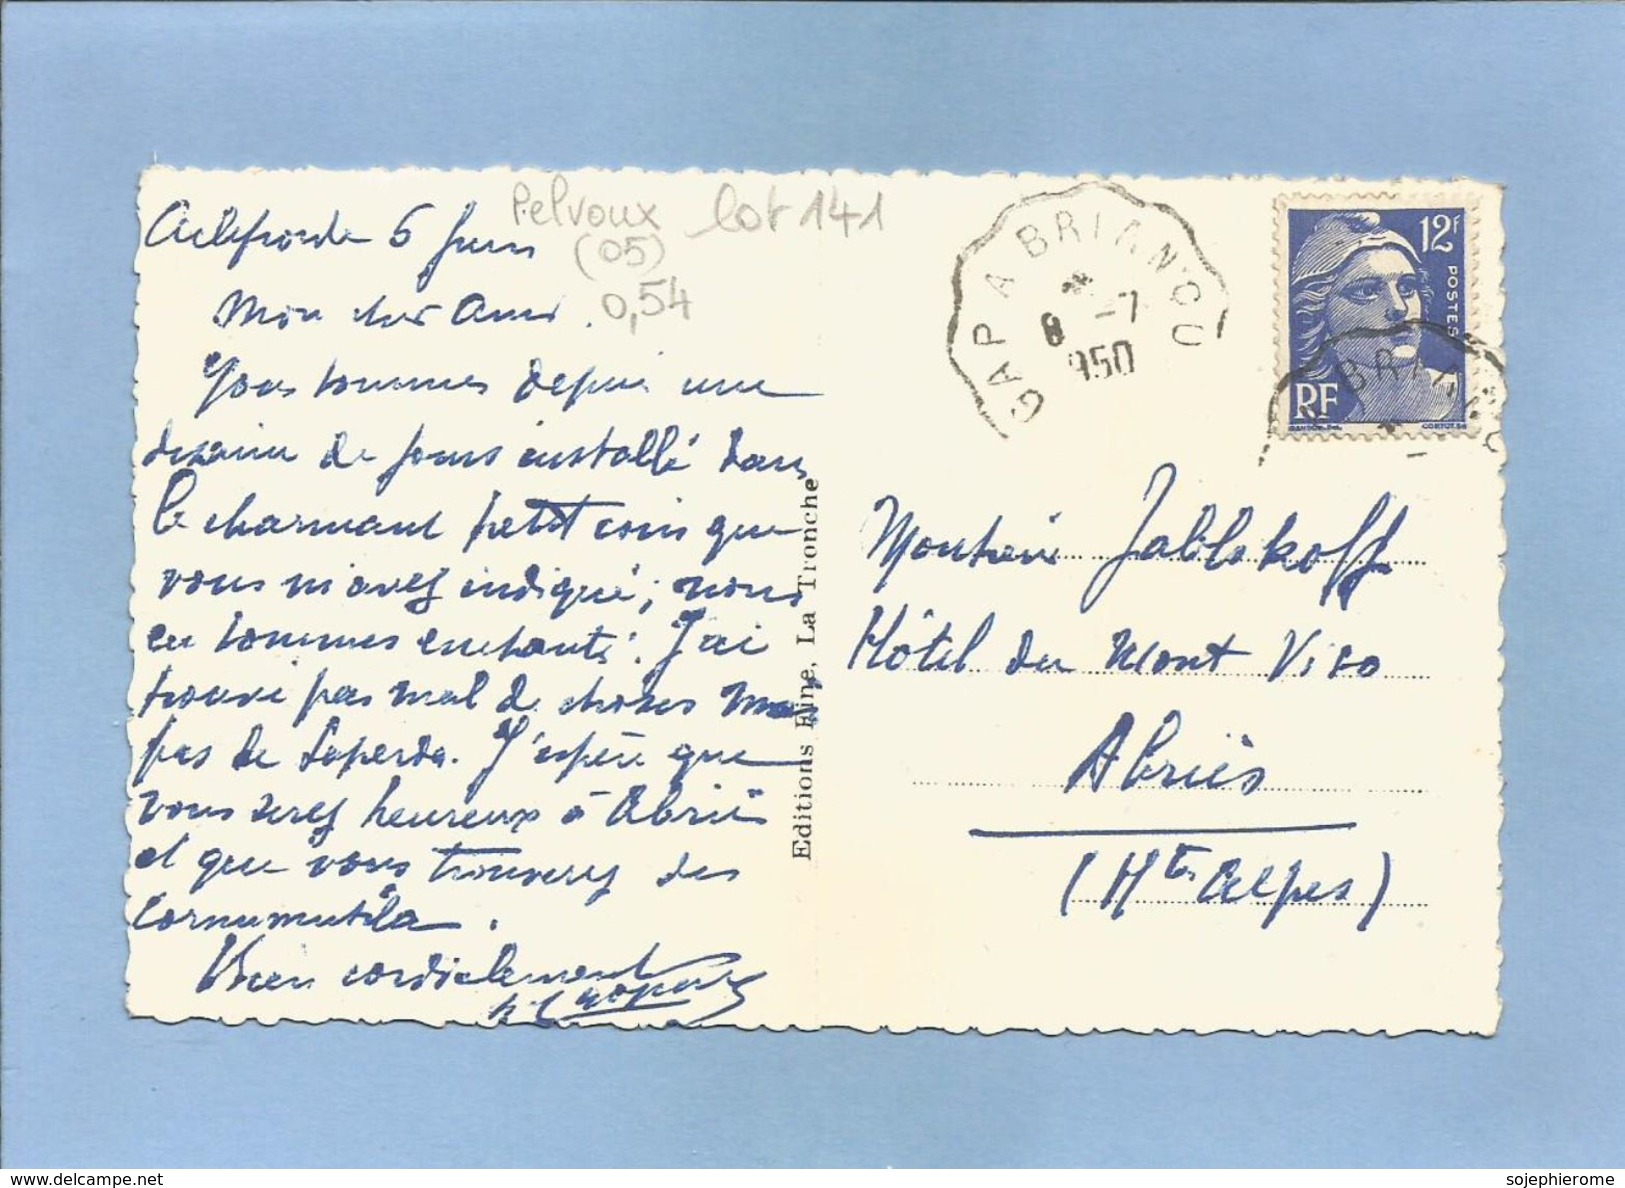 Ailefroide 6 Juin
Pelvoux lot 141
(05)
0,54
Mon cher Ami.
Nous sommes depuis une
dizaine de jours installé dans
le charmant petit coin que
vous m'avez indiqué; nous
en sommes enchantés. J'ai
trouvé pas mal de choses mais
pas de Saperda. J'espère que
vous serez heureux à Abriès
et que vous trouverez des
Cornumutila.
Bien cordialement
Editions Fine, La Tronche
GAP A BRIANÇON
8 -7
1950
12F
POSTES
RF
GANDON
CORTOT
BRIAN
Monsieur Jablokoff
Hôtel du Mont Viso
Abriès
(Htes Alpes)
sojephierome